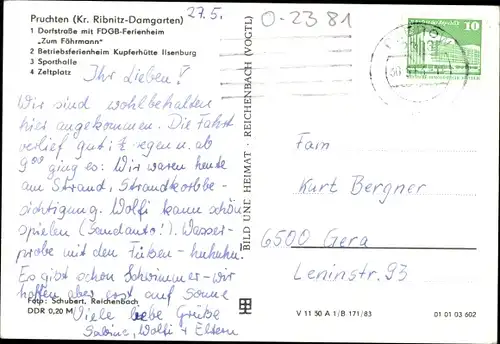 Pruchten (Kr. Ribnitz-Damgarten)
1 Dorfstraße mit FDGB-Ferienheim
„Zum Fährmann"
2 Betriebsferienheim Kupferhütte Ilsenburg
3 Sporthalle
4 Zeltplatz
27.5.
Ihr Lieben!
Wir sind wohlbehalten
hier angekommen. Die Fahrt
verlief gut; z. regen u. ab
9⁰⁰ ging es: Wir waren heute
am Strand, Strandkorbbe-
sichtigung. Wolfi kann schön
spielen (Sandauto!). Wasser-
probe mit den Füßen - huhuhu.
Es gibt schon Schwimmer - wir
hoffen aber erst auf Sonne
Viele liebe Grüße
Sabine, Wolfi + Eltern
Foto: Schubert, Reichenbach
DDR 0,20 M
BILD UND HEIMAT · REICHENBACH (VOGTL)
0-2381
10
Fam
Kurt Bergner
6500 Gera
Leninstr. 93
V 11 50 A 1/B 171/83
01 01 03 602